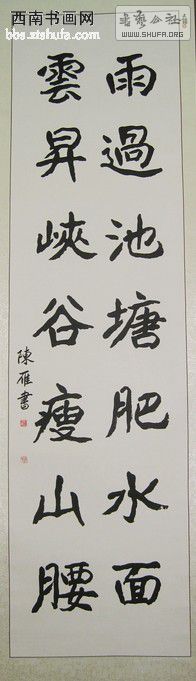 西南书画网
bbs.xishufa.com
书艺公社
WWW.SHUFA.ORG
雨過池塘肥水面
雲昇峽谷瘦山腰
陳雁書